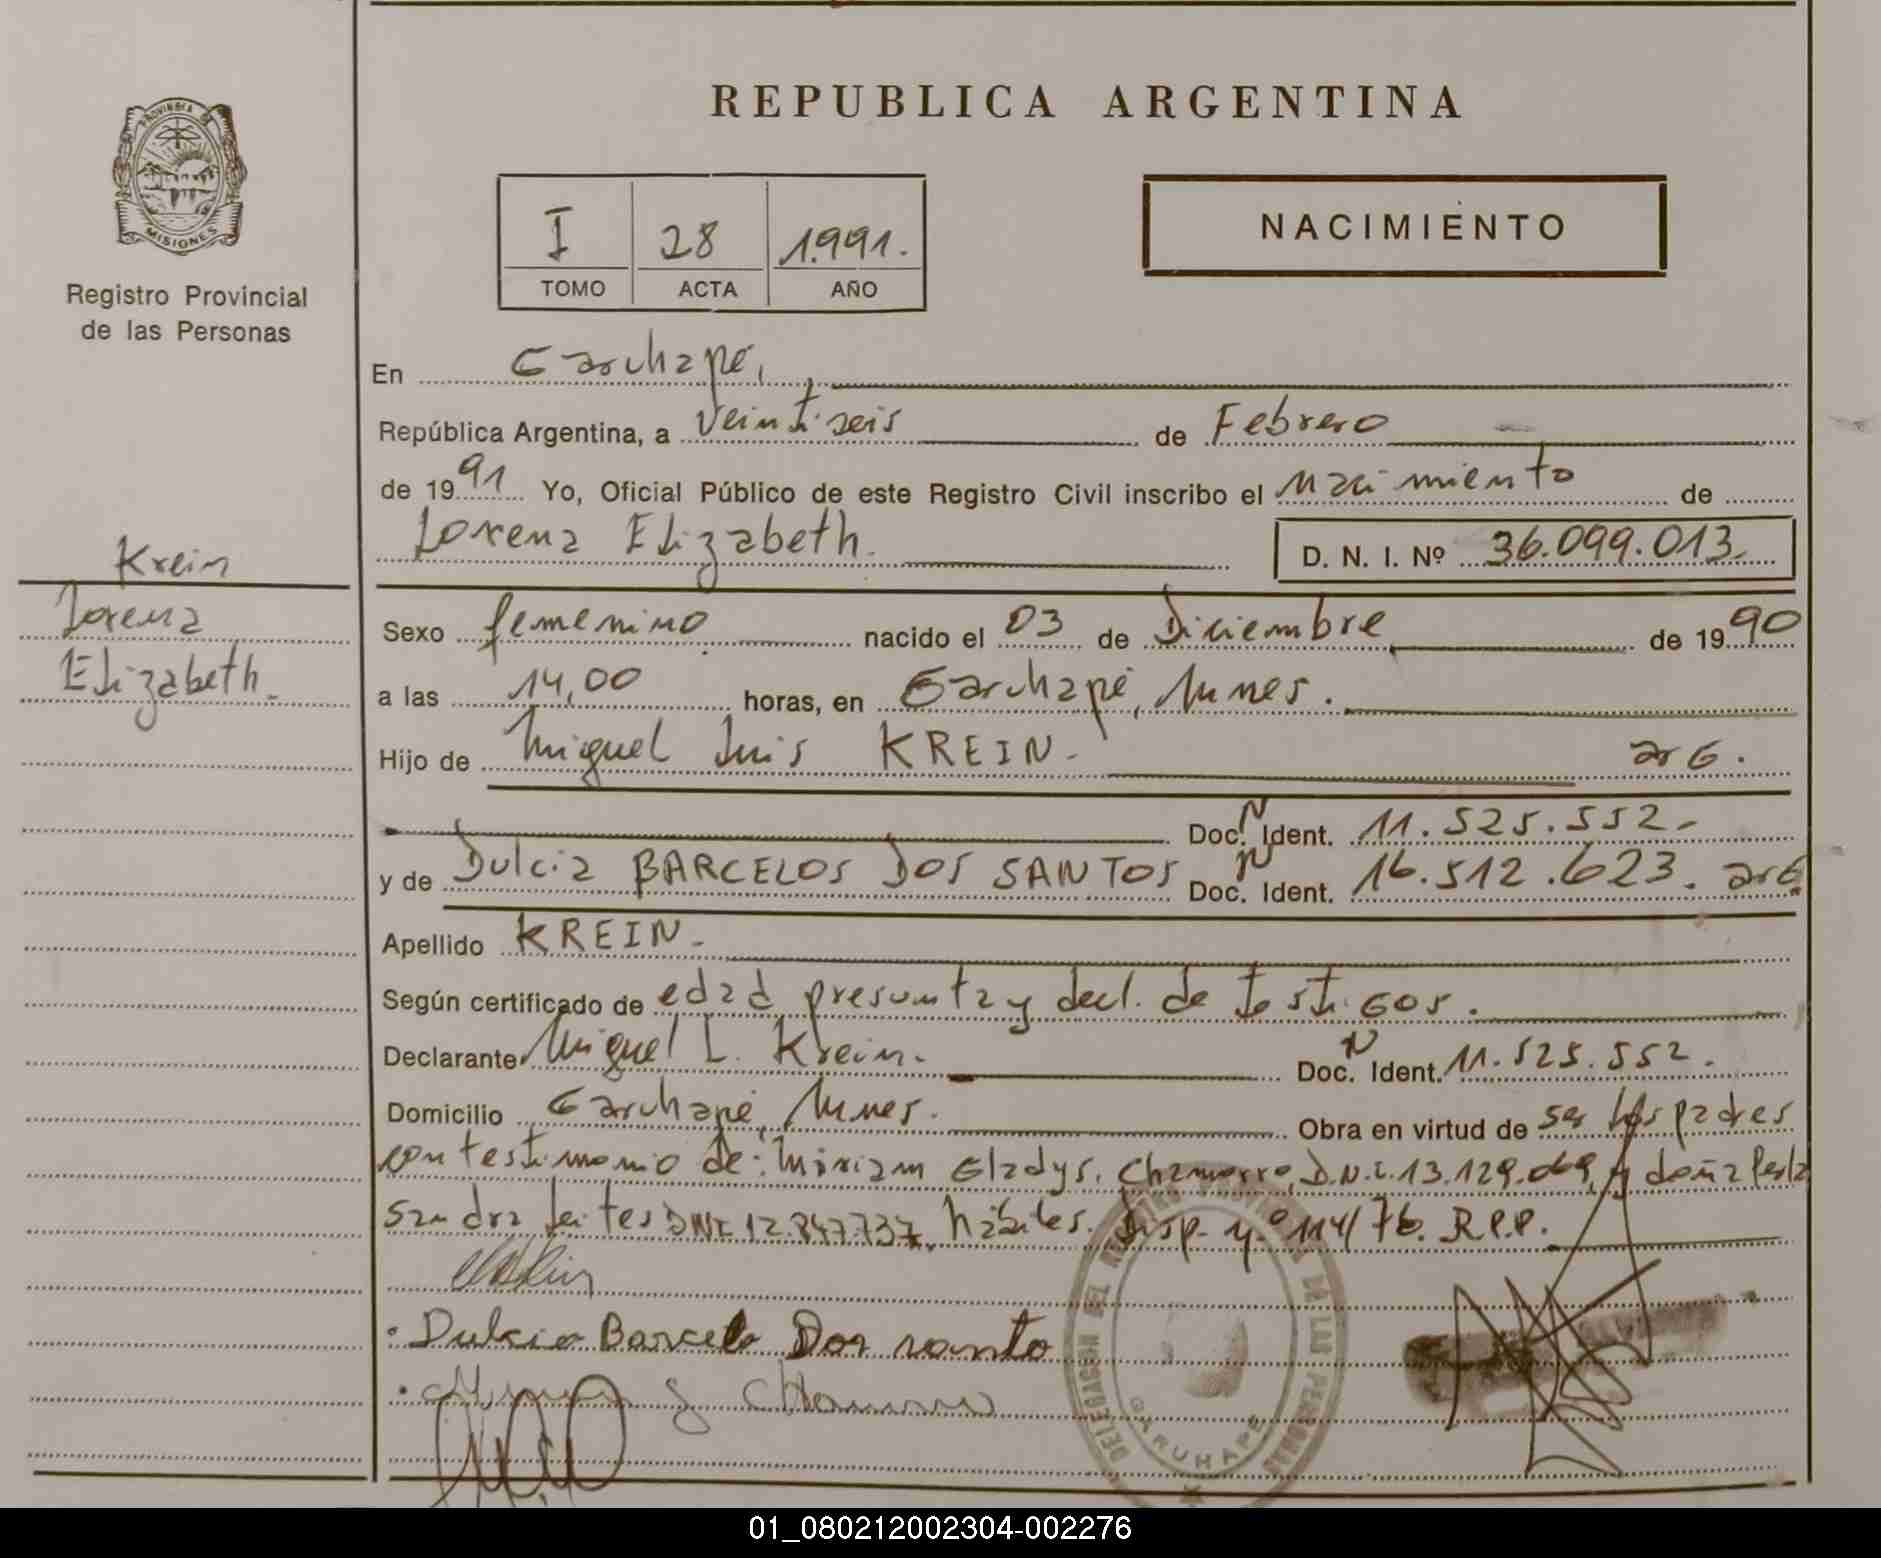 REPUBLICA ARGENTINA
PROVINCIA DE
MISIONES
Registro Provincial
de las Personas
I 28 1.991.
TOMO ACTA AÑO
NACIMIENTO
En Garuhapé,
República Argentina, a Veintiseis de Febrero
de 1991 Yo, Oficial Público de este Registro Civil inscribo el nacimiento de
Lorena Elizabeth. D. N. I. Nº 36.099.013.
Krein
Lorena
Elizabeth.
Sexo femenino nacido el 03 de Diciembre de 1990
a las 14,00 horas, en Garuhapé, Mnes.
Hijo de Miguel Luis KREIN. arG.
Doc. N Ident. 11.525.552.-
y de Dulcia BARCELOS DOS SANTOS Doc. N Ident. 16.512.623. arG.
Apellido KREIN.-
Según certificado de edad presunta y decl. de testiGos.
Declarante Miguel L. Krein. Doc. N Ident. 11.525.552.
Domicilio Garuhapé, Mnes. Obra en virtud de ser los padres
con testimonio de: Miriam Gladys. Chamorro, D.N.I. 13.129.069, y doña Perla
Sandra Leites DNI 12.847.737, hábiles. Disp. nº 114/76. R.P.P.
Dulcia Barcelo Dos santo
DELEGACION DEL REGISTRO PROVINCIAL DE LAS PERSONAS
GARUHAPE
01_080212002304-002276